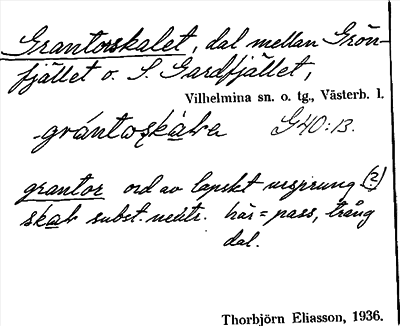 Grantorskalet, dal mellan Grön-
fjället o. S. Gardfjället,
Vilhelmina sn. o. tg., Västerb. l.
grántoṣkàlva G40:13.
grantor ord av lapskt ursprung (?)
skal subst. neutr. här = pass, trång
dal.
Thorbjörn Eliasson, 1936.